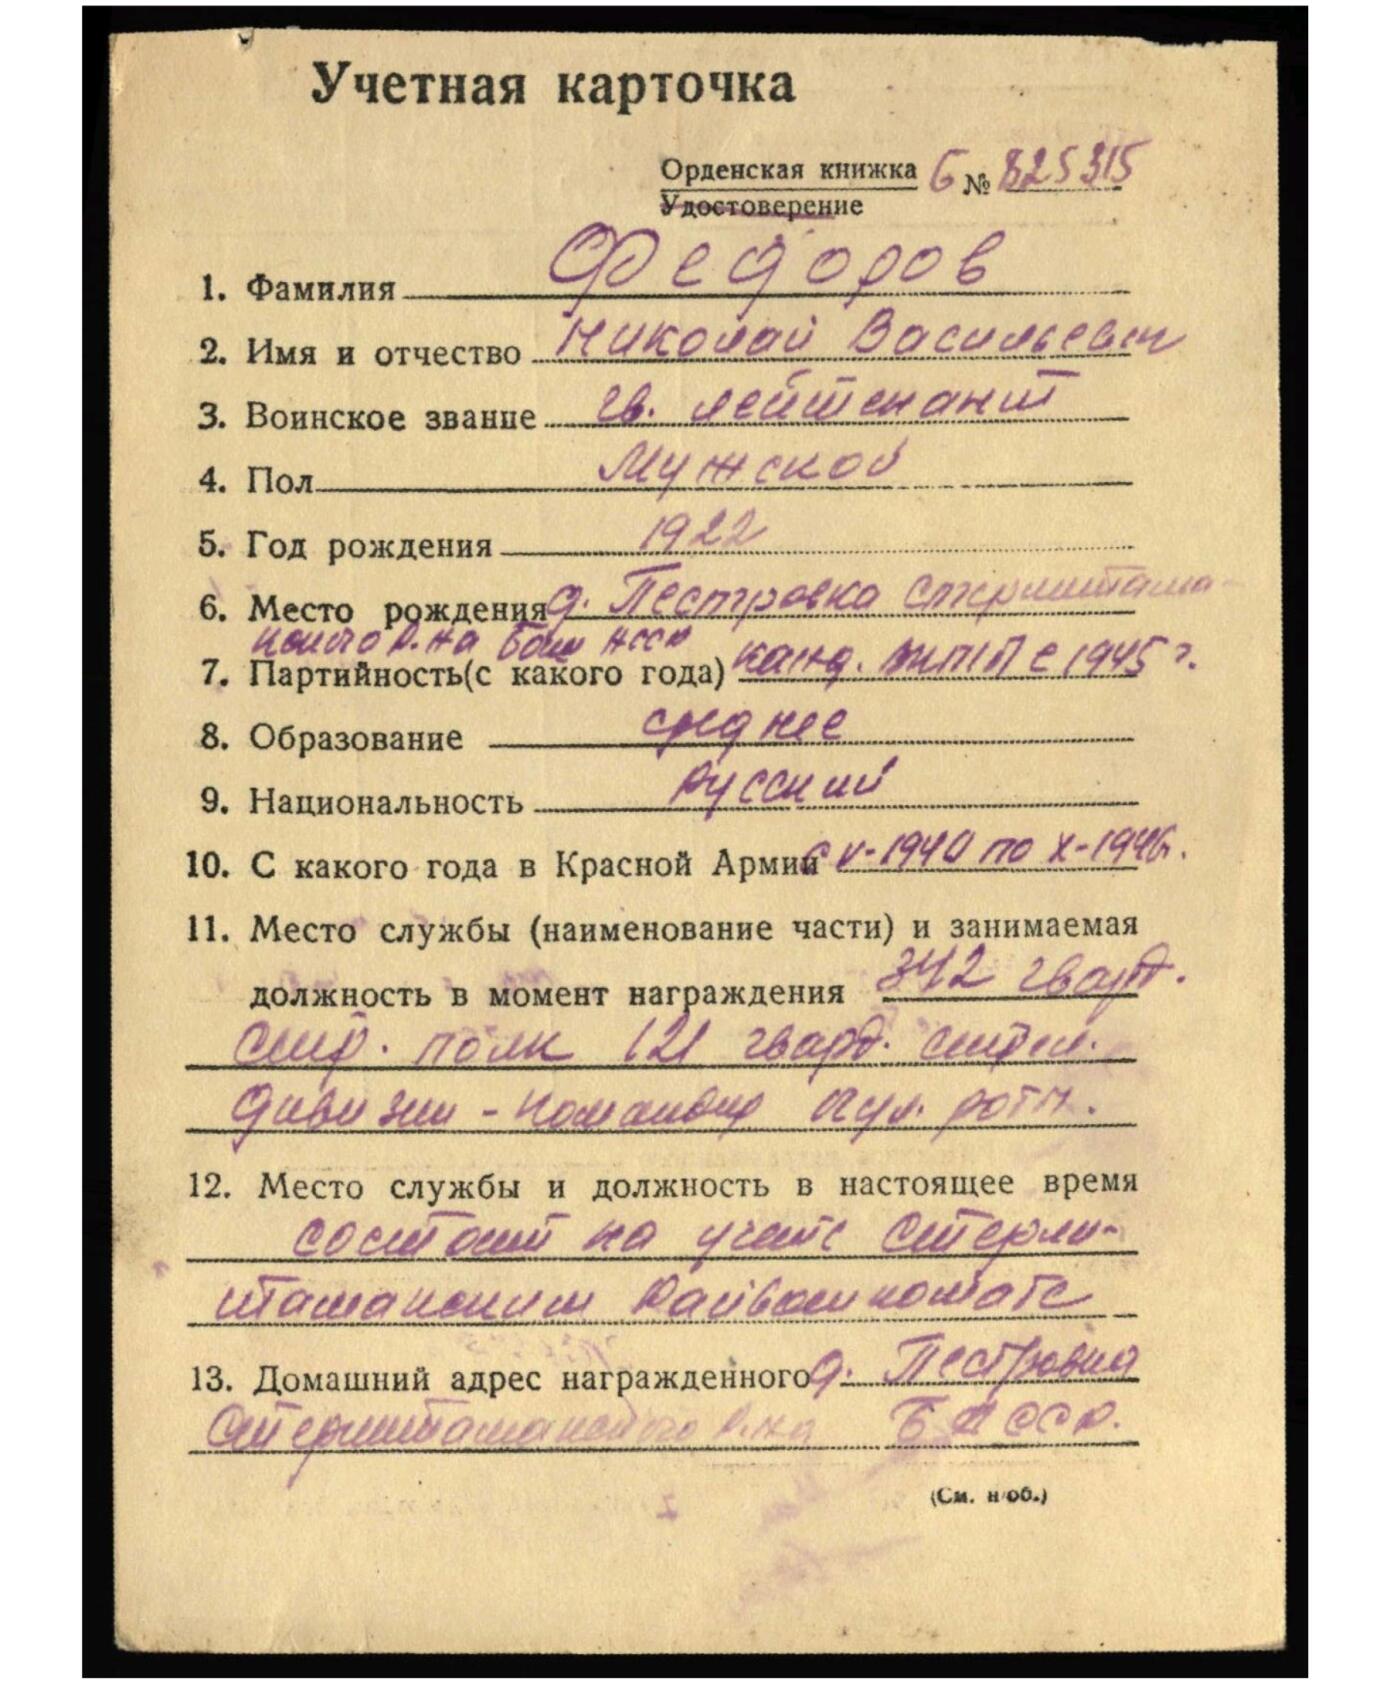 Учетная карточка
Орденская книжка Б № 825315
Удостоверение
1. Фамилия Федоров
2. Имя и отчество Николай Васильевич
3. Воинское звание гв. лейтенант
4. Пол Мужской
5. Год рождения 1922
6. Место рождения д. Пестровка Стерлитама-
кского р.на Баш АССР
7. Партийность (с какого года) канд. ВКП/П с 1945 г.
8. Образование среднее
9. Национальность Русский
10. С какого года в Красной Армии с V-1940 по X-1946г.
11. Место службы (наименование части) и занимаемая
должность в момент награждения 342 гвард.
стр. полк 121 гвард. стрел.
дивизии - командир пул. роты.
12. Место службы и должность в настоящее время
состоит на учете Стерли-
тамакским Райвоенкомате
13. Домашний адрес награжденного д. Пестровка
Стерлитамакского р.на БАССР.
(См. н/об.)